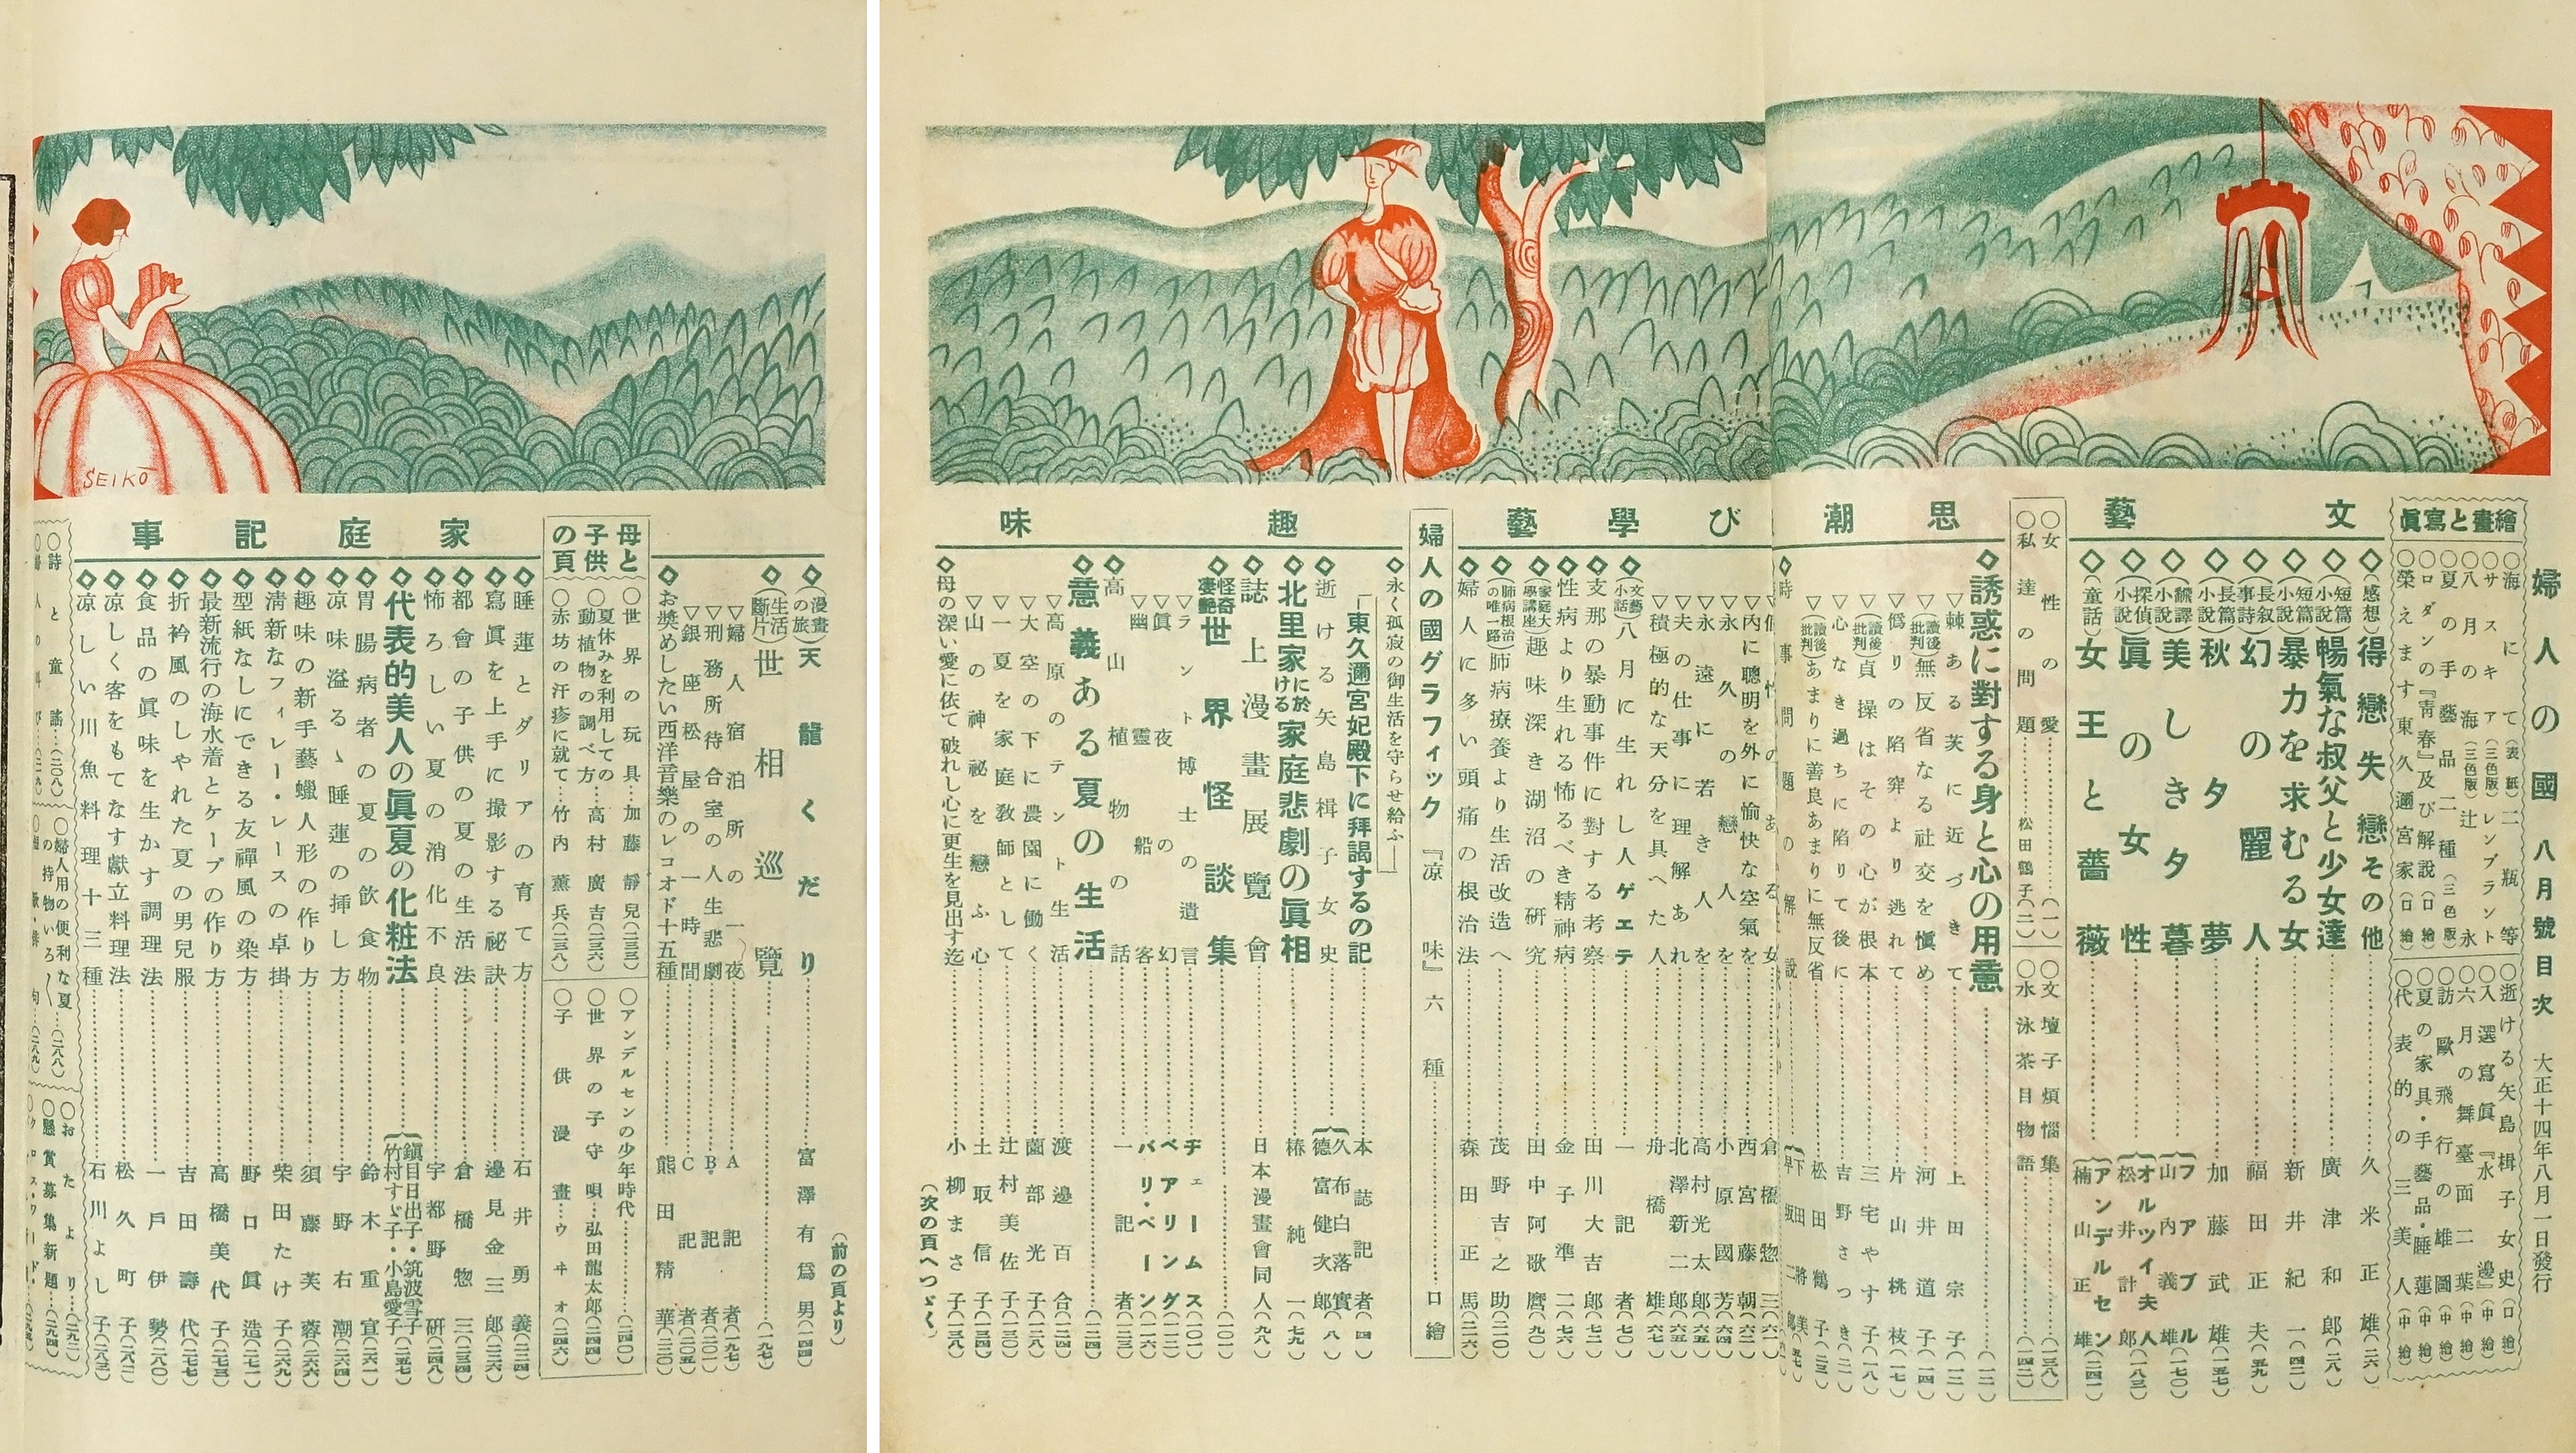 婦人の國 八月號目次 大正十四年八月一日發行
繪畫と寫眞
○海 て(表紙)二瓶等
○サスキア(三色版)レンブラント
○八月の海(三色版)辻永
○夏の手藝品二種(三色版)
○ロダンの『靑春』及び解說(口繪)
○榮えます東久邇宮家(口繪)
○逝ける矢島楫子女史(口繪)
○入選寫眞『水邊』(中繪)
○六月の舞臺面二葉(中繪)
○訪歐飛行の雄圖(中繪)
○夏の家具・手藝品・睡蓮(中繪)
○代表的の三美人(中繪)
文藝
◇(感想)得戀失戀その他……久米正雄(二六)
◇(短篇小說)暢氣な叔父と少女達……廣津和郎(二八)
◇(短篇小說)暴力を求むる女……新井紀一(四二)
◇(長敘事詩)幻の麗人……福田正夫(五九)
◇(長篇小說)秋夕夢……加藤武雄(一五七)
◇(飜譯小說)美しき夕暮……フアブル 山内義雄(一七〇)
◇(探偵小說)眞の女性……オルツイ夫人 松井計郎(一八三)
◇(童話)女王と薔薇……アンデルセン 楠山正雄(二四一)
○女性の愛……(一)
○私達の問題……松田鶴子(二)
○文壇子煩惱集……(一三八)
○水泳茶目物語……(一四二)
思潮
◇誘惑に對する身と心の用意……(一二)
▽棘ある茨に近づきて……上田宗子(一二)
▽(讀後批判)無反省なる社交を愼め……河井道子(一四)
▽僞りの陷穽より逃れて……片山桃枝(一七)
▽(讀後批判)貞操はその心が根本……三宅やす子(一八)
▽心なき過ちに陷りて後に……吉野さつき(二一)
▽(讀後批判)あまりに善良あまりに無反省……松田鶴子(二三)
◇時事問題の解說
び學藝
▽内に聰明を外に愉快な空氣を……西宮藤朝(六二)
▽永久の戀人を……小原國芳(六四)
▽永遠に若き人を……高村光太郎(六五)
▽夫の仕事に理解あれ……北澤新二郎(六五)
▽積極的な天分を具へた人……舟橋雄(六七)
◇(文藝小話)八月に生れし人ゲエテ……一記者(七〇)
◇支那の暴動事件に對する考察……田川大吉郎(七二)
◇性病より生れる怖るべき精神病……金子準二(七六)
◇(家庭大學講座)趣味深き湖沼の硏究……田中阿歌麿(九〇)
◇(肺病根治の唯一路)肺病療養より生活改造へ……茂野吉之助(二一〇)
◇婦人に多い頭痛の根治法……森田正馬(二一六)
婦人の國グラフィック『凉味』六種……口繪
趣味
◇永く孤寂の御生活を守らせ給ふ
「東久邇宮妃殿下に拜謁するの記……本誌記者(四)
◇逝ける矢島楫子女史……久布白落實 德富健次郎(八)
◇北里家に於ける家庭悲劇の眞相……椿純一(七九)
◇誌上漫畫展覽會……日本漫畫會同人(九八)
◇怪奇凄艶世界怪談集……(一〇一)
▽ラント博士の遺言……ヂェームス(一〇一)
▽眞夜の幻……ベアリング(一一二)
▽幽靈船客……バリ・ペーン(一一六)
◇高山植物の話……一記者(一二三)
◇意義ある夏の生活……(一二四)
▽高原のテント生活……渡邊百合(一二四)
▽大空の下に農園に働く……薗部光子(一二八)
▽一夏を家庭敎師として……辻村美佐子(一三〇)
▽山の神祕を戀ふ心……土取信子(一三四)
◇母の深い愛に依て破れし心に更生を見出す迄……小柳まさ子(一三八)
(次の頁へつゞく)
(前の頁より)
◇(漫畫の旅)天龍くだり……富澤有爲男(一四四)
◇(生活斷片)世相巡覽……(一九七)
▽婦人宿泊所の一夜……A記者(一九七)
▽刑務所待合室の人生悲劇……B記者(二〇一)
▽銀座松屋の一時間……C記者(二〇五)
◇お奬めしたい西洋音樂のレコオド十五種……熊田精華(二三〇)
母と子供の頁
○世界の玩具…加藤靜兒(二三三)
○夏休みを利用しての動植物の調べ方…高村廣吉(二三六)
○赤坊の汗疹に就て…竹内薰兵(二三八)
○アンデルセンの少年時代……(二四〇)
○世界の子守唄…弘田龍太郎(二四四)
○子供漫畫…ウヰオ(二四六)
家庭記事
◇睡蓮とダリアの育て方……石井勇義(二二四)
◇寫眞を上手に撮影する祕訣……邊見金三郎(二二六)
◇都會の子供の夏の生活法……倉橋惣三(二三四)
◇怖ろしい夏の消化不良……宇都野硏(二四八)
◇代表的美人の眞夏の化粧法……鎭目日出子・筑波雪子 竹村すゞ子・小島愛子(二五七)
◇胃腸病者の夏の飮食物……鈴木重宣(二六一)
◇凉味溢るゝ睡蓮の揷し方……宇野右潮(二六四)
◇趣味の新手藝蠟人形の作り方……須藤芙蓉(二六六)
◇淸新なフィレー・レースの卓掛……柴田たけ子(二六九)
◇型紙なしにできる友禪風の染方……野口眞造(二七一)
◇最新流行の海水着とケープの作り方……高橋美代子(二七三)
◇折衿風のしやれた夏の男兒服……吉田壽代(二七七)
◇食品の眞味を生かす調理法……一戶伊勢(二八〇)
◇凉しく客をもてなす獻立料理法……松久町子(二八二)
◇凉しい川魚料理十三種……石川よし子(二八三)
○詩と童謠…(二〇八)
○婦人用の便利な夏の持物いろ〳〵…(二八八)
○おたより…(二九二)
○懸賞募集新題…(二九四)
SEIKŌ